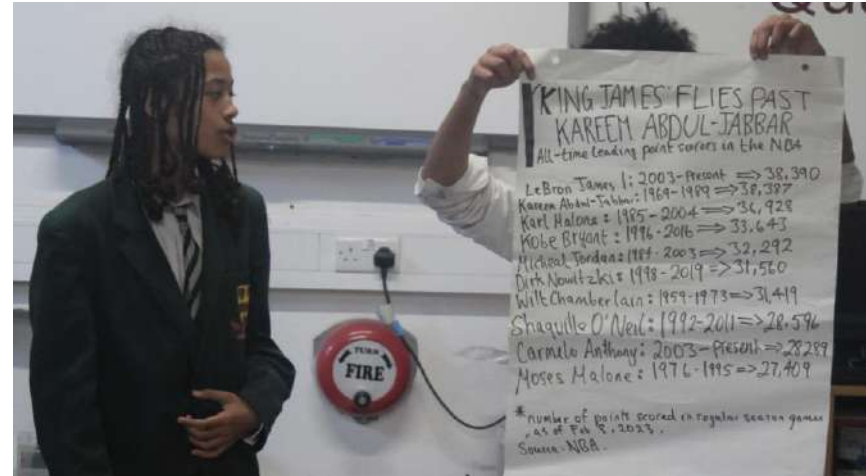 Qu
'KING JAMES' FLIES PAST
KAREEM ABDUL-JABBAR
All-time leading point scorers in the NBA
LeBron James 1: 2003-Present => 38,390
Kareem Abdul-Jabbar: 1969-1989 => 38,387
Karl Malone: 1985-2004 => 36,928
Kobe Bryant: 1996-2016 => 33,643
Micheal Jordan: 1984-2003 => 32,292
Dirk Nowitzki: 1998-2019 => 31,560
Wilt Chamberlain: 1959-1973 => 31,419
Shaquille O'Neil: 1992-2011 => 28,596
Carmelo Anthony: 2003-Present => 28289
Moses Malone: 1976-1995 => 27,409
*number of points scored in regular season games
as of Feb 8, 2023.
Source-NBA.
TURN
FIRE